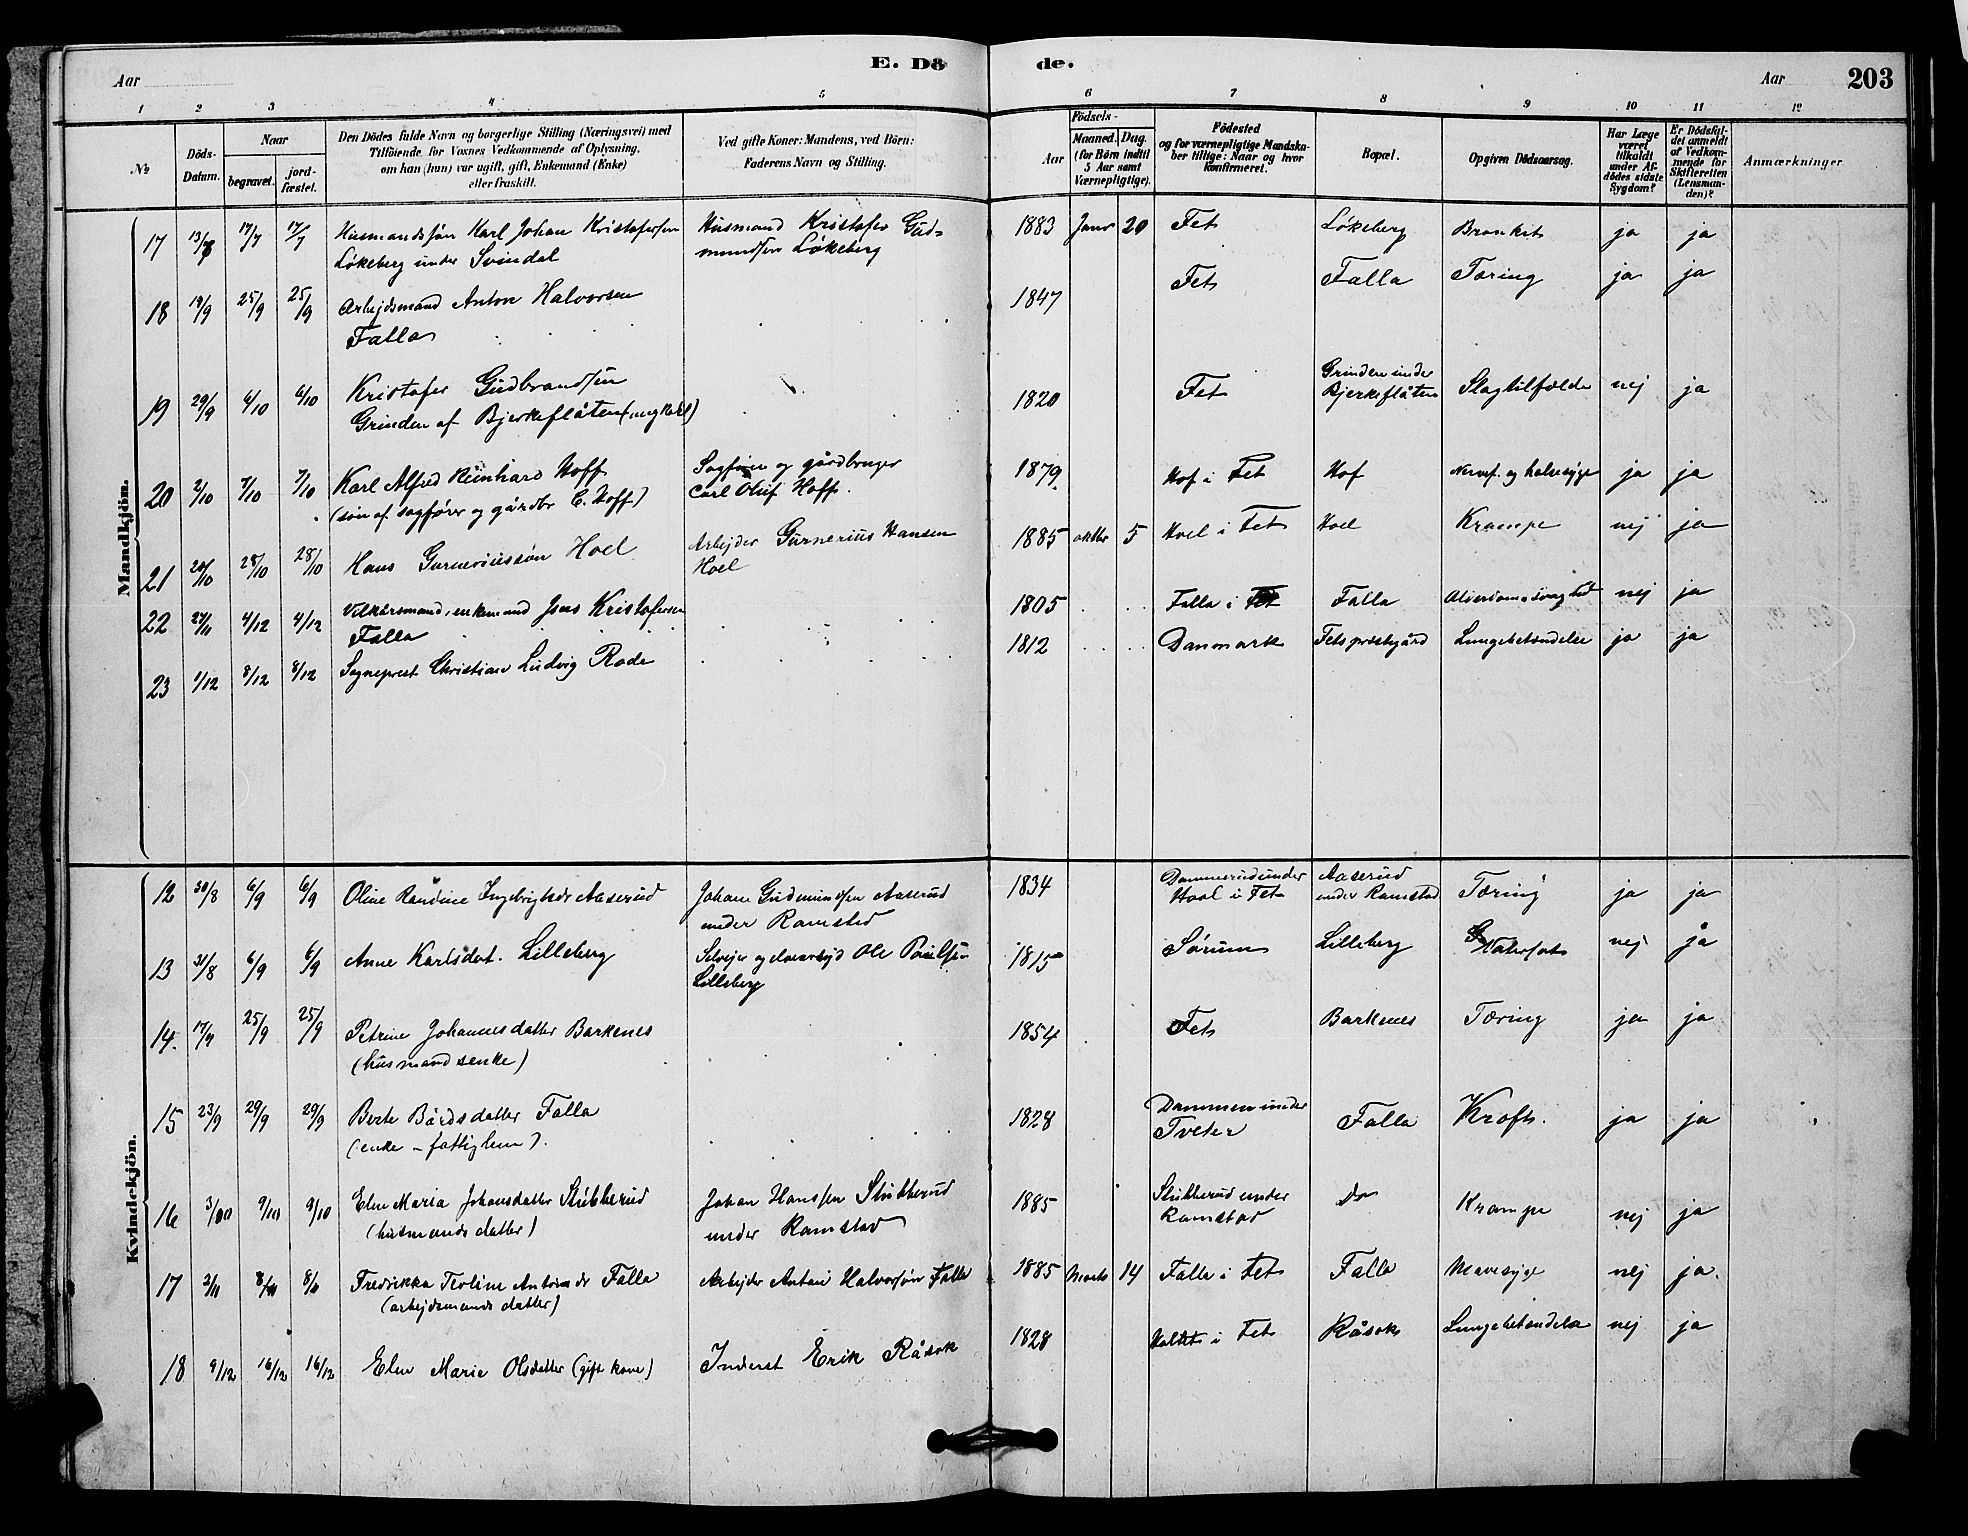 E. Dö de.
Aar
Aar
203
1 2 3 4 5 6 7 8 9 10 11 12
№
Döds-Datum.
Naar
begravet.
jord-fæstet.
Den Dödes fulde Navn og borgerlige Stilling (Næringsvei) med
Tilföiende for Voxnes Vedkommende af Oplysning,
om han (hun) var ugift, gift, Enkemand (Enke)
eller fraskilt.
Ved gifte Koner: Mandens, ved Börn:
Faderens Navn og Stilling.
Födsels-
Aar
Maaned. Dag.
(for Börn indtil
5 Aar samt
Værnepligtige).
Födested
og for værnepligtige Mandska-
ber tillige: Naar og hvor
konfirmeret.
Bopæl.
Opgiven Dödsaarsag.
Har Læge
været
tilkaldt
under Af-
dödes sidste
Sygdom?
Er Dödsfal-
det anmeldt
af Vedkom-
mende for
Skifteretten
(Lensman-
den)?
Anmærkninger
Mandkjön.
17 13/7 17/7 17/7 Husmandssøn Karl Johan Kristofersen Husmand Kristofer Gud- 1883 Janr 20 Fet Løkeberg Bronkit ja ja
Løkeberg under Svindal mundsen Løkeberg
18 19/9 25/9 25/9 Arbejdsmand Anton Halvorsen 1847 Fet Falla Tæring ja ja
Falla
19 29/9 6/10 6/10 Kristofer Gudbrandsen 1820 Fet Grinden under Bjerkeflåten Slagtilfælde nej ja
Grinden af Bjerkeflåten (ungkarl)
20 2/10 7/10 7/10 Karl Alfred Reinhard Hoff Sagfører og gårdbruger 1879 Hof i Fet Hof Nervef. og halsesyge ja ja
(søn af sagfører og gårdbr C. Hoff) Carl Oluf Hoff.
21 20/10 28/10 28/10 Hans Gurneriussøn Hoel Arbejder Gurnerius Hansen 1885 oktbr 5 Hoel i Fet Hoel Krampe nej ja
Hoel
22 27/11 4/12 4/12 Vilkårsmand, enkemand Jens Kristofersen 1805 Falla i Fet Falla Alderdomssvaghed nej ja
Falla
23 1/12 8/12 8/12 Sogneprest Christian Ludvig Rode 1812 Danmark Fets præstegård Lungebetændelse ja ja
Kvindekjön.
12 30/8 6/9 6/9 Oline Randine Ingebrigtsdr Aaserud Johan Gudmundsen Aaserud 1834 Dammerud under Aaserud Tæring ja ja
under Ramstad Hval i Fet under Ramstad
13 31/8 6/9 6/9 Anne Karlsdat. Lilleberg Selvejer Ole Paulsen 1815 Sørum Lilleberg nej ja
Lilleberg
14. 17/9 25/9 25/9 Petrine Johannesdatter Barkenes 1854 Fet Barkenes Tæring ja ja
(husmandsenke)
15 23/9 29/9 29/9 Berte Bårdsdatter Falla 1828 Dammen under Falla Kræft. ja ja
(enke - fattiglem). Tveter
16 3/10 9/10 9/10 Elen Maria Johansdatter Stubberud Johan Hanssen Stubberud 1885 Stubberud under Do Krampe nej ja
(husmands datter) under Ramstad Ramstad
17 3/11 8/11 8/11 Fredrikka Teoline Antonsdr Falla Arbejder Anton Halvorsøn Falla 1885 Marts 14 Falla i Fet Falla Mavesyge nej ja.
(arbejdsmands datter)
18 9/12 16/12 16/12 Elen Marie Olsdatter (gift kone) Inderst Erik Råsok 1828 Holtet i Fet Råsok Lungebetændelse nej ja